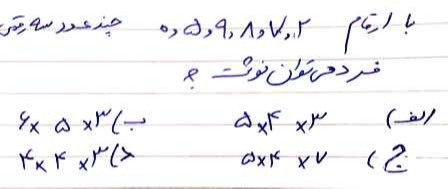 با ارقام ۲ , ۷ , ۸ , ۹ , ۵ , ۰ چند عدد سه رقمی
فرد می توان نوشت ؟
الف) ۵×۴ ×۳ ب) ۶× ۵ ×۳
ج) ۵×۴ ×۷ د) ۴× ۴ ×۳